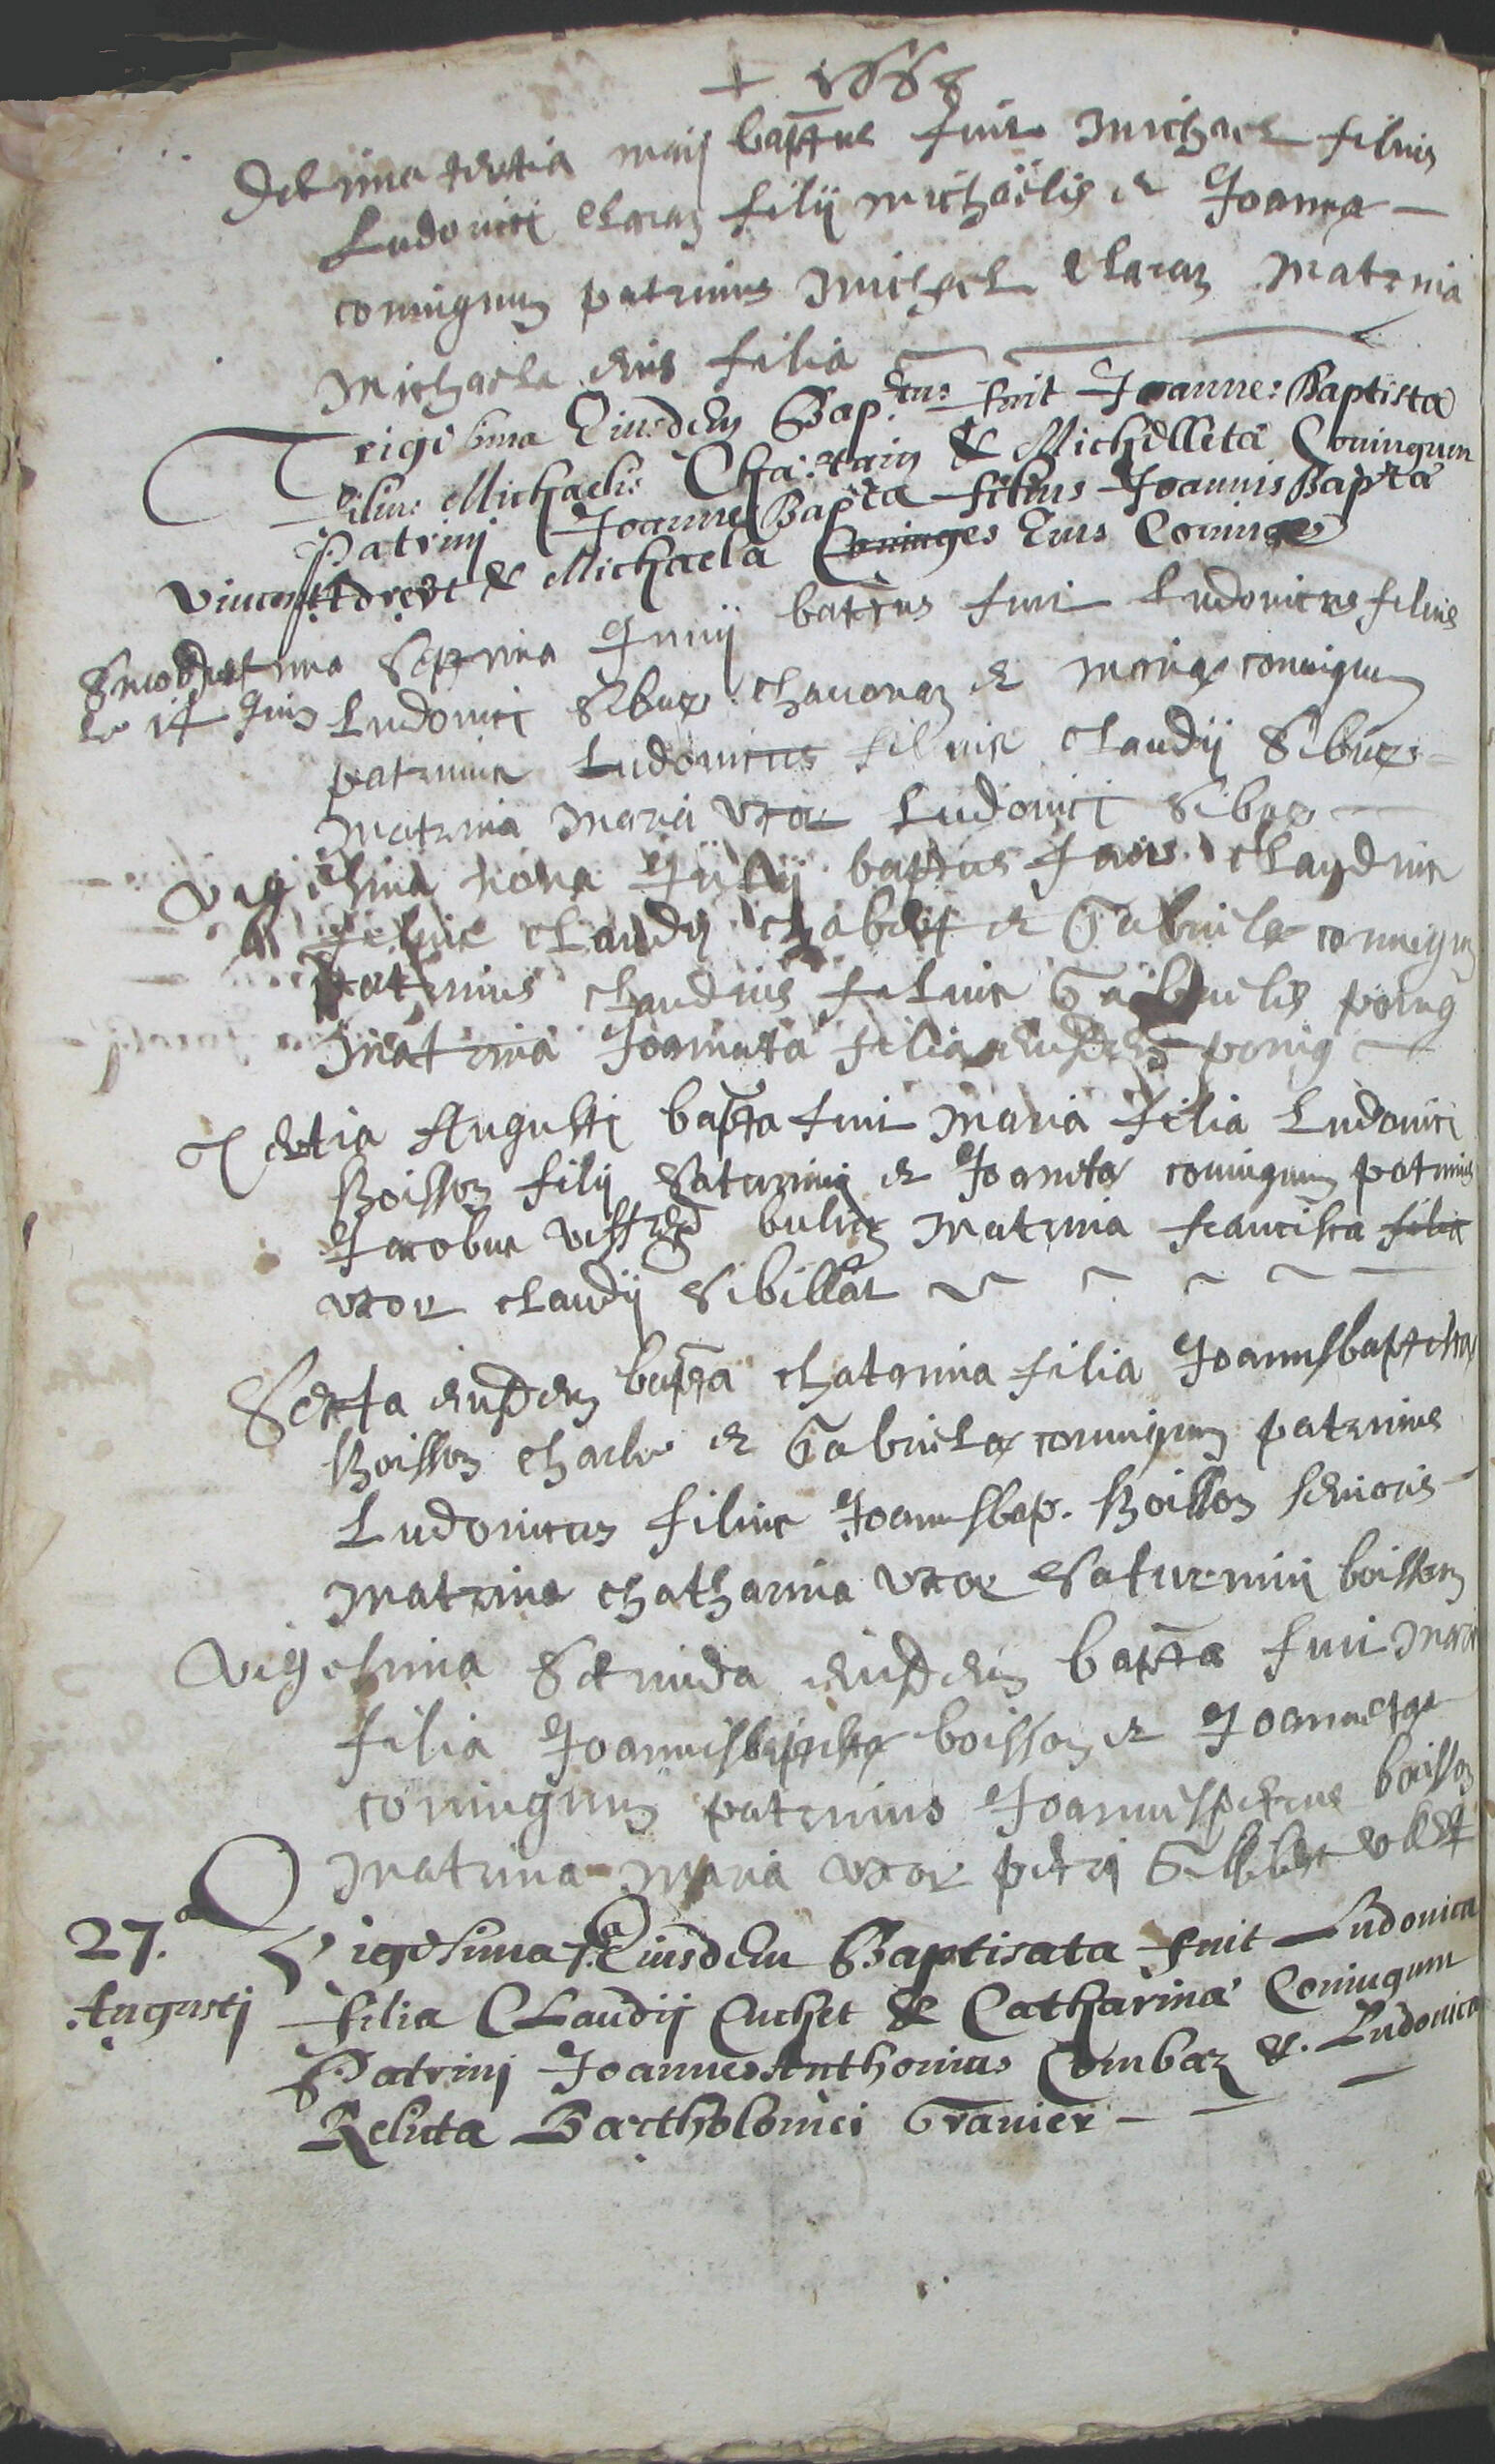 + 1668
Decima tertia maij bap̃tus fuit Michael filius
Ludovici Claraz filij Michaëlis et Joanna
coniugum patrinus Michael Claraz Matrina
Michaela eius filia
Trigesima Eiusdem Bap.tus fuit Joannes Baptista
filius Michaelis & Michilleta Coniugum
Patrinj Joannes Bapt̃a filius Joannis Bapt̃a
Vincent & Michaela Coniuges Eius Coniuges
septima Junij bap̃tus fuit Ludovicus filius
le 17 Juin Ludovici Sibuex chavonaz et Mariæ coniugum
patrinus Ludovicus filius Claudij Sibuex
Matrina Maria uxor Ludovici Sibuex
Vigesima nona Julij baptus fuit Claudius
filius Claudij Chabert et Gabrielæ coniugum
patrinus Claudius filius Gabrielis
Matrina Joanneta filia eiusdem
Tertia Augusti bap̃ta fuit Maria filia Ludovici
Boisson filij Saturnini et Joannetæ coniugum patrinus
Jacobus Matrina francisca filia
uxor Claudij Sibillat
Sexta eiusdem bap̃ta Chatarina filia Joannisbaptistæ
Boisson Charles et Gabrielæ coniugum patrinus
Ludovicus filius Joannisbap. Boisson senioris
Matrina Chatharina uxor Saturnini boisson
Vigesima Secunda eiusdem bap̃ta fuit Maria
filia Joannisbaptistæ boisson et Joannetæ
coniugum patrinus Joannespetrus boisson
Matrina Maria uxor petri
27.a Vigesima 7.a Eiusdem Baptisata fuit Ludovica
Augustj filia Claudij Cuchet & Catharina Coniugum
Patrinj Joannes Anthonius Combaz &. Ludovica
Relicta Bartholomei Granier